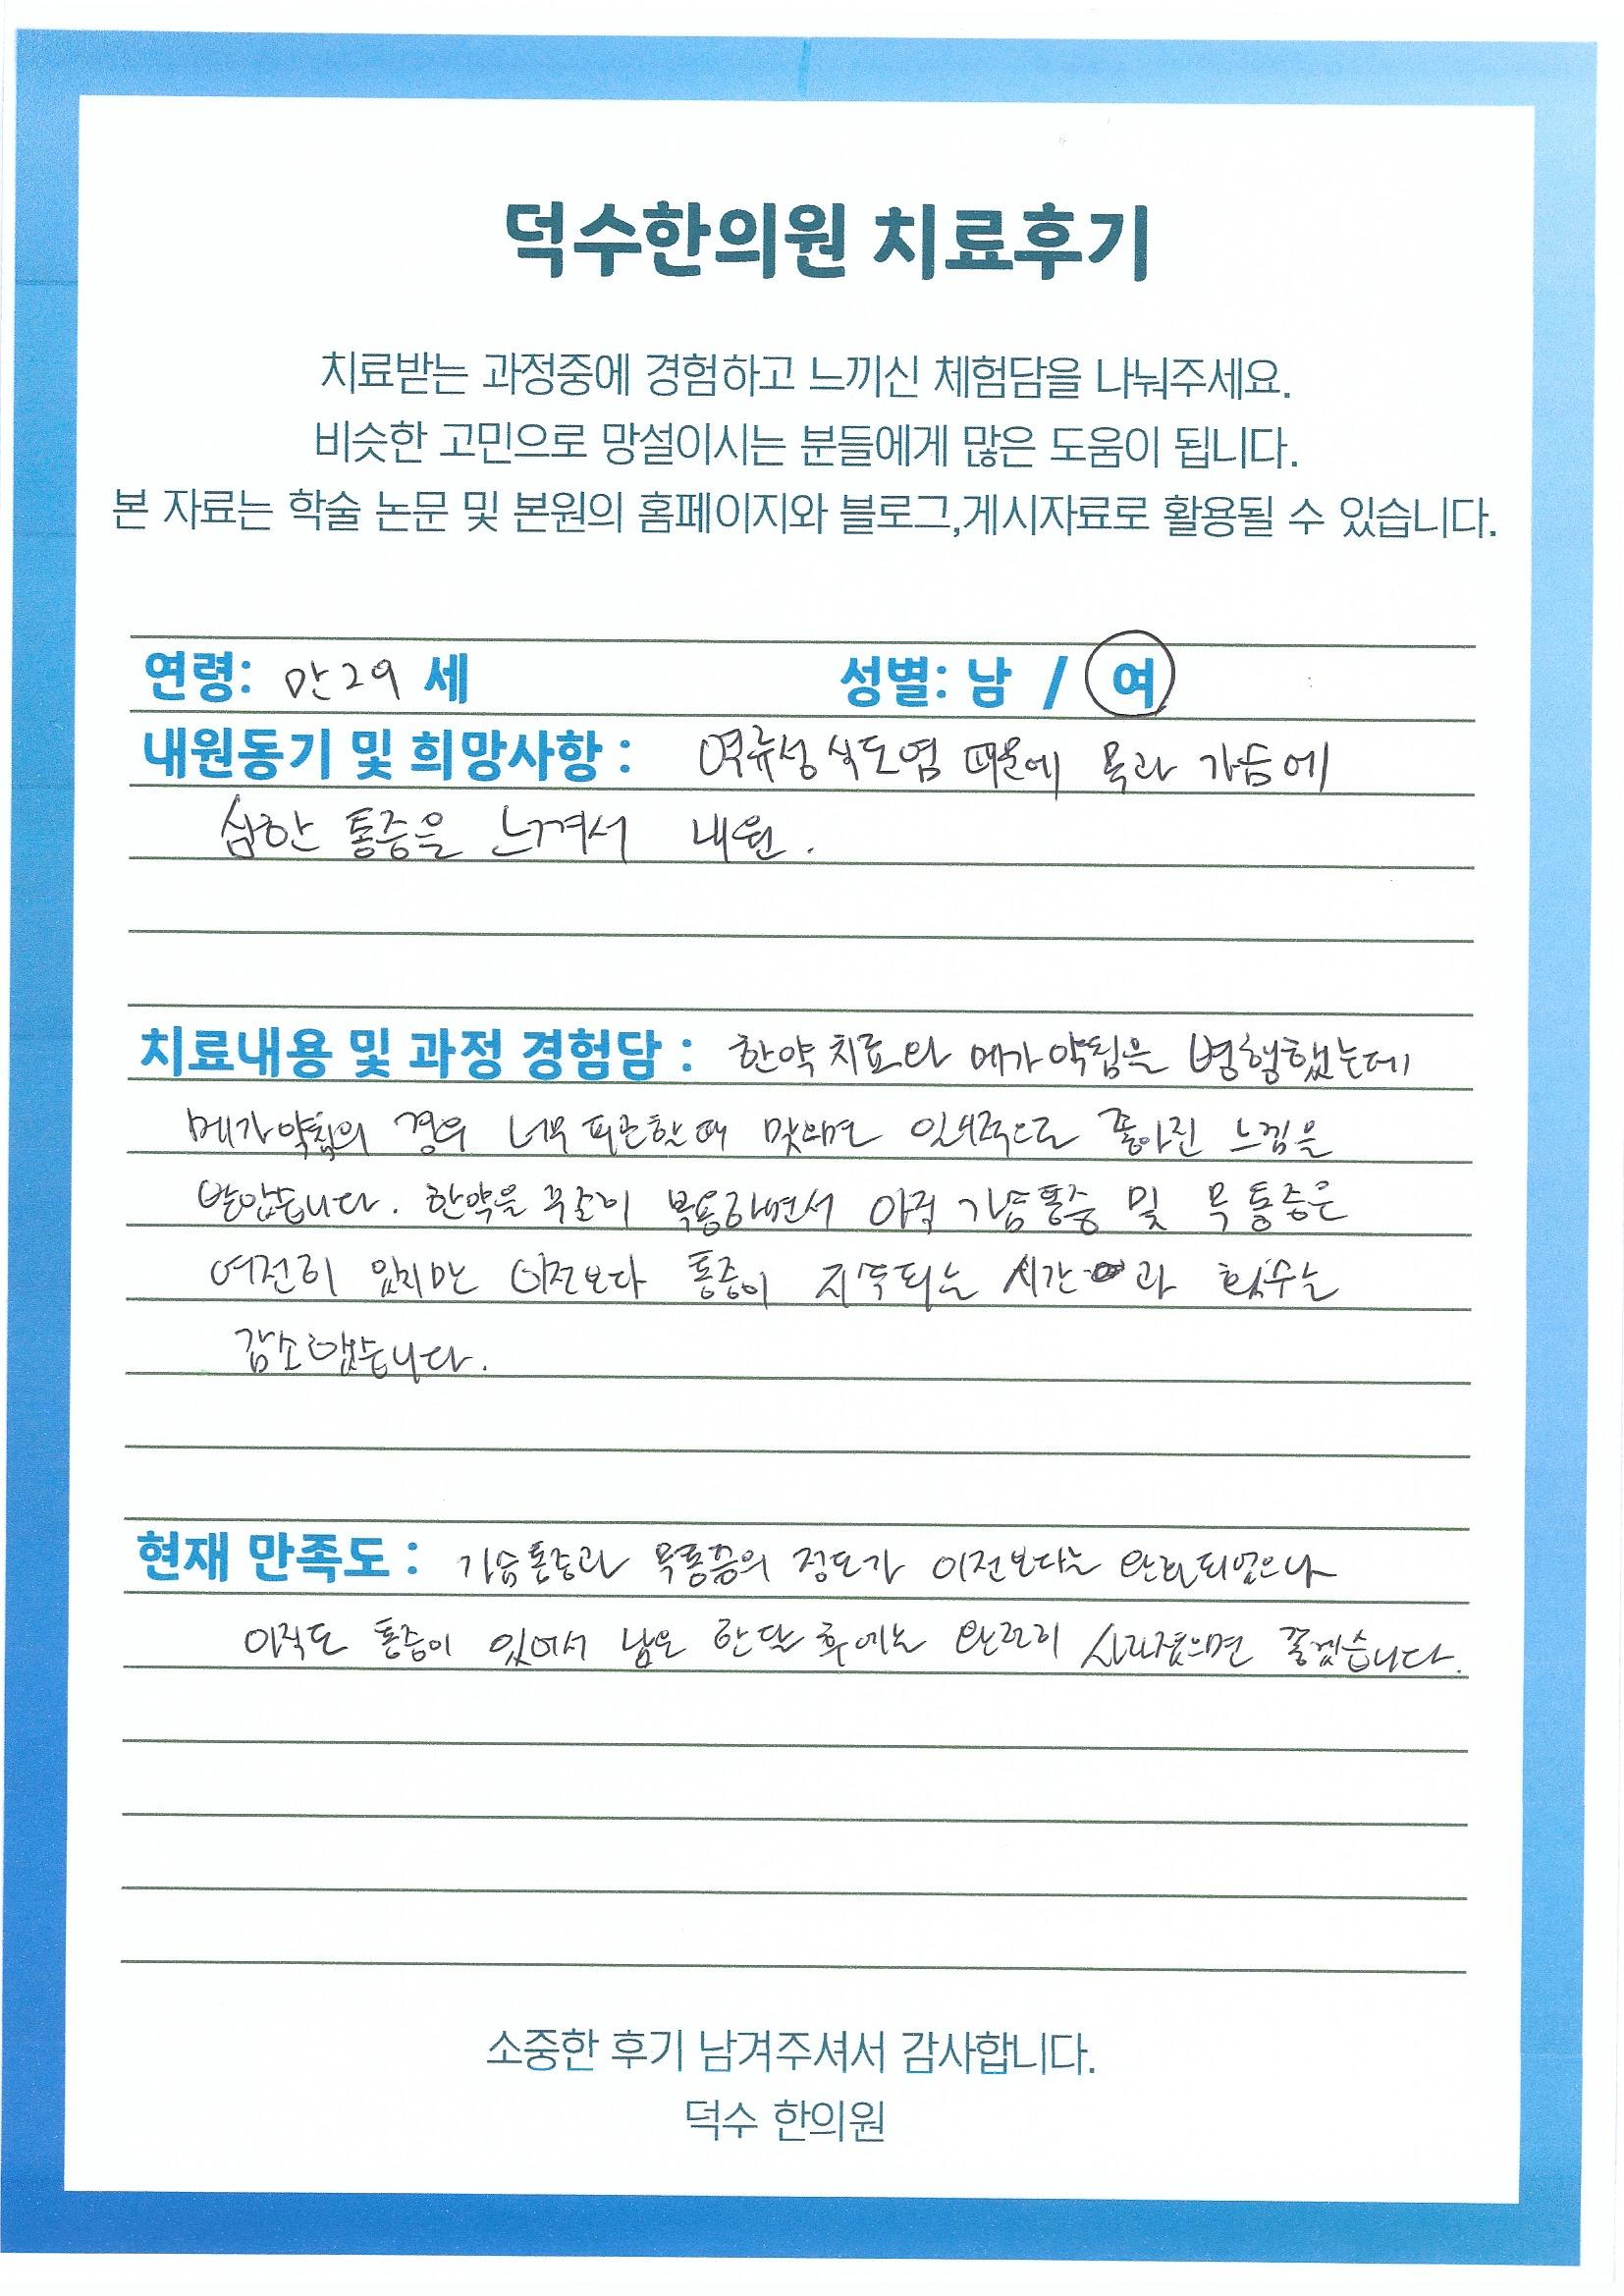 덕수한의원 치료후기
치료받는 과정중에 경험하고 느끼신 체험담을 나눠주세요.
비슷한 고민으로 망설이시는 분들에게 많은 도움이 됩니다.
본 자료는 학술 논문 및 본원의 홈페이지와 블로그,게시자료로 활용될 수 있습니다.
연령: 만29 세 성별: 남 / 여
내원동기 및 희망사항 : 역류성 식도염 때문에 목과 가슴에
심한 통증을 느껴서 내원.
치료내용 및 과정 경험담 : 한약치료와 메가약침을 병행했는데
메가약침의 경우 너무 피곤할때 맞으면 일시적으로 좋아진 느낌을
받았습니다. 한약을 꾸준히 복용하면서 아직 가슴통증 및 목 통증은
여전히 있지만 이전보다 통증이 지속되는 시간과 횟수는
감소하였습니다.
현재 만족도 : 가슴통증과 목통증의 정도가 이전보다는 완화되었으나
아직도 통증이 있어서 남은 한달 후에는 완전히 사라졌으면 좋겠습니다.
소중한 후기 남겨주셔서 감사합니다.
덕수 한의원